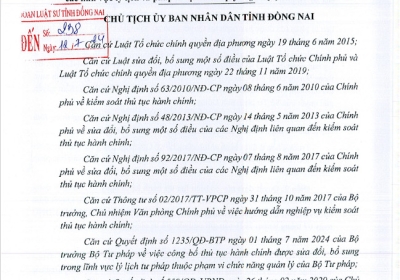 ĐOÀN LUẬT SƯ TỈNH ĐỒNG NAI
ĐẾN
Số:
Ngày:
CHỦ TỊCH ỦY BAN NHÂN DÂN TỈNH ĐỒNG NAI
Căn cứ Luật Tổ chức chính quyền địa phương ngày 19 tháng 6 năm 2015;
Căn cứ Luật sửa đổi, bổ sung một số điều của Luật Tổ chức Chính phủ và
Luật Tổ chức chính quyền địa phương ngày 22 tháng 11 năm 2019;
Căn cứ Nghị định số 63/2010/NĐ-CP ngày 08 tháng 6 năm 2010 của Chính
phủ về kiểm soát thủ tục hành chính;
Căn cứ Nghị định số 48/2013/NĐ-CP ngày 14 tháng 5 năm 2013 của Chính
phủ về sửa đổi, bổ sung một số điều của các Nghị định liên quan đến kiểm soát
thủ tục hành chính;
Căn cứ Nghị định số 92/2017/NĐ-CP ngày 07 tháng 8 năm 2017 của Chính
phủ về sửa đổi, bổ sung một số điều của các Nghị định liên quan đến kiểm soát
thủ tục hành chính;
Căn cứ Thông tư số 02/2017/TT-VPCP ngày 31 tháng 10 năm 2017 của Bộ
trưởng, Chủ nhiệm Văn phòng Chính phủ về việc hướng dẫn nghiệp vụ kiểm soát
thủ tục hành chính;
Căn cứ Quyết định số 1235/QĐ-BTP ngày 01 tháng 7 năm 2024 của Bộ
trưởng Bộ Tư pháp về việc công bố thủ tục hành chính được sửa đổi, bổ sung
trong lĩnh vực lý lịch tư pháp thuộc phạm vi chức năng quản lý của Bộ Tư pháp;